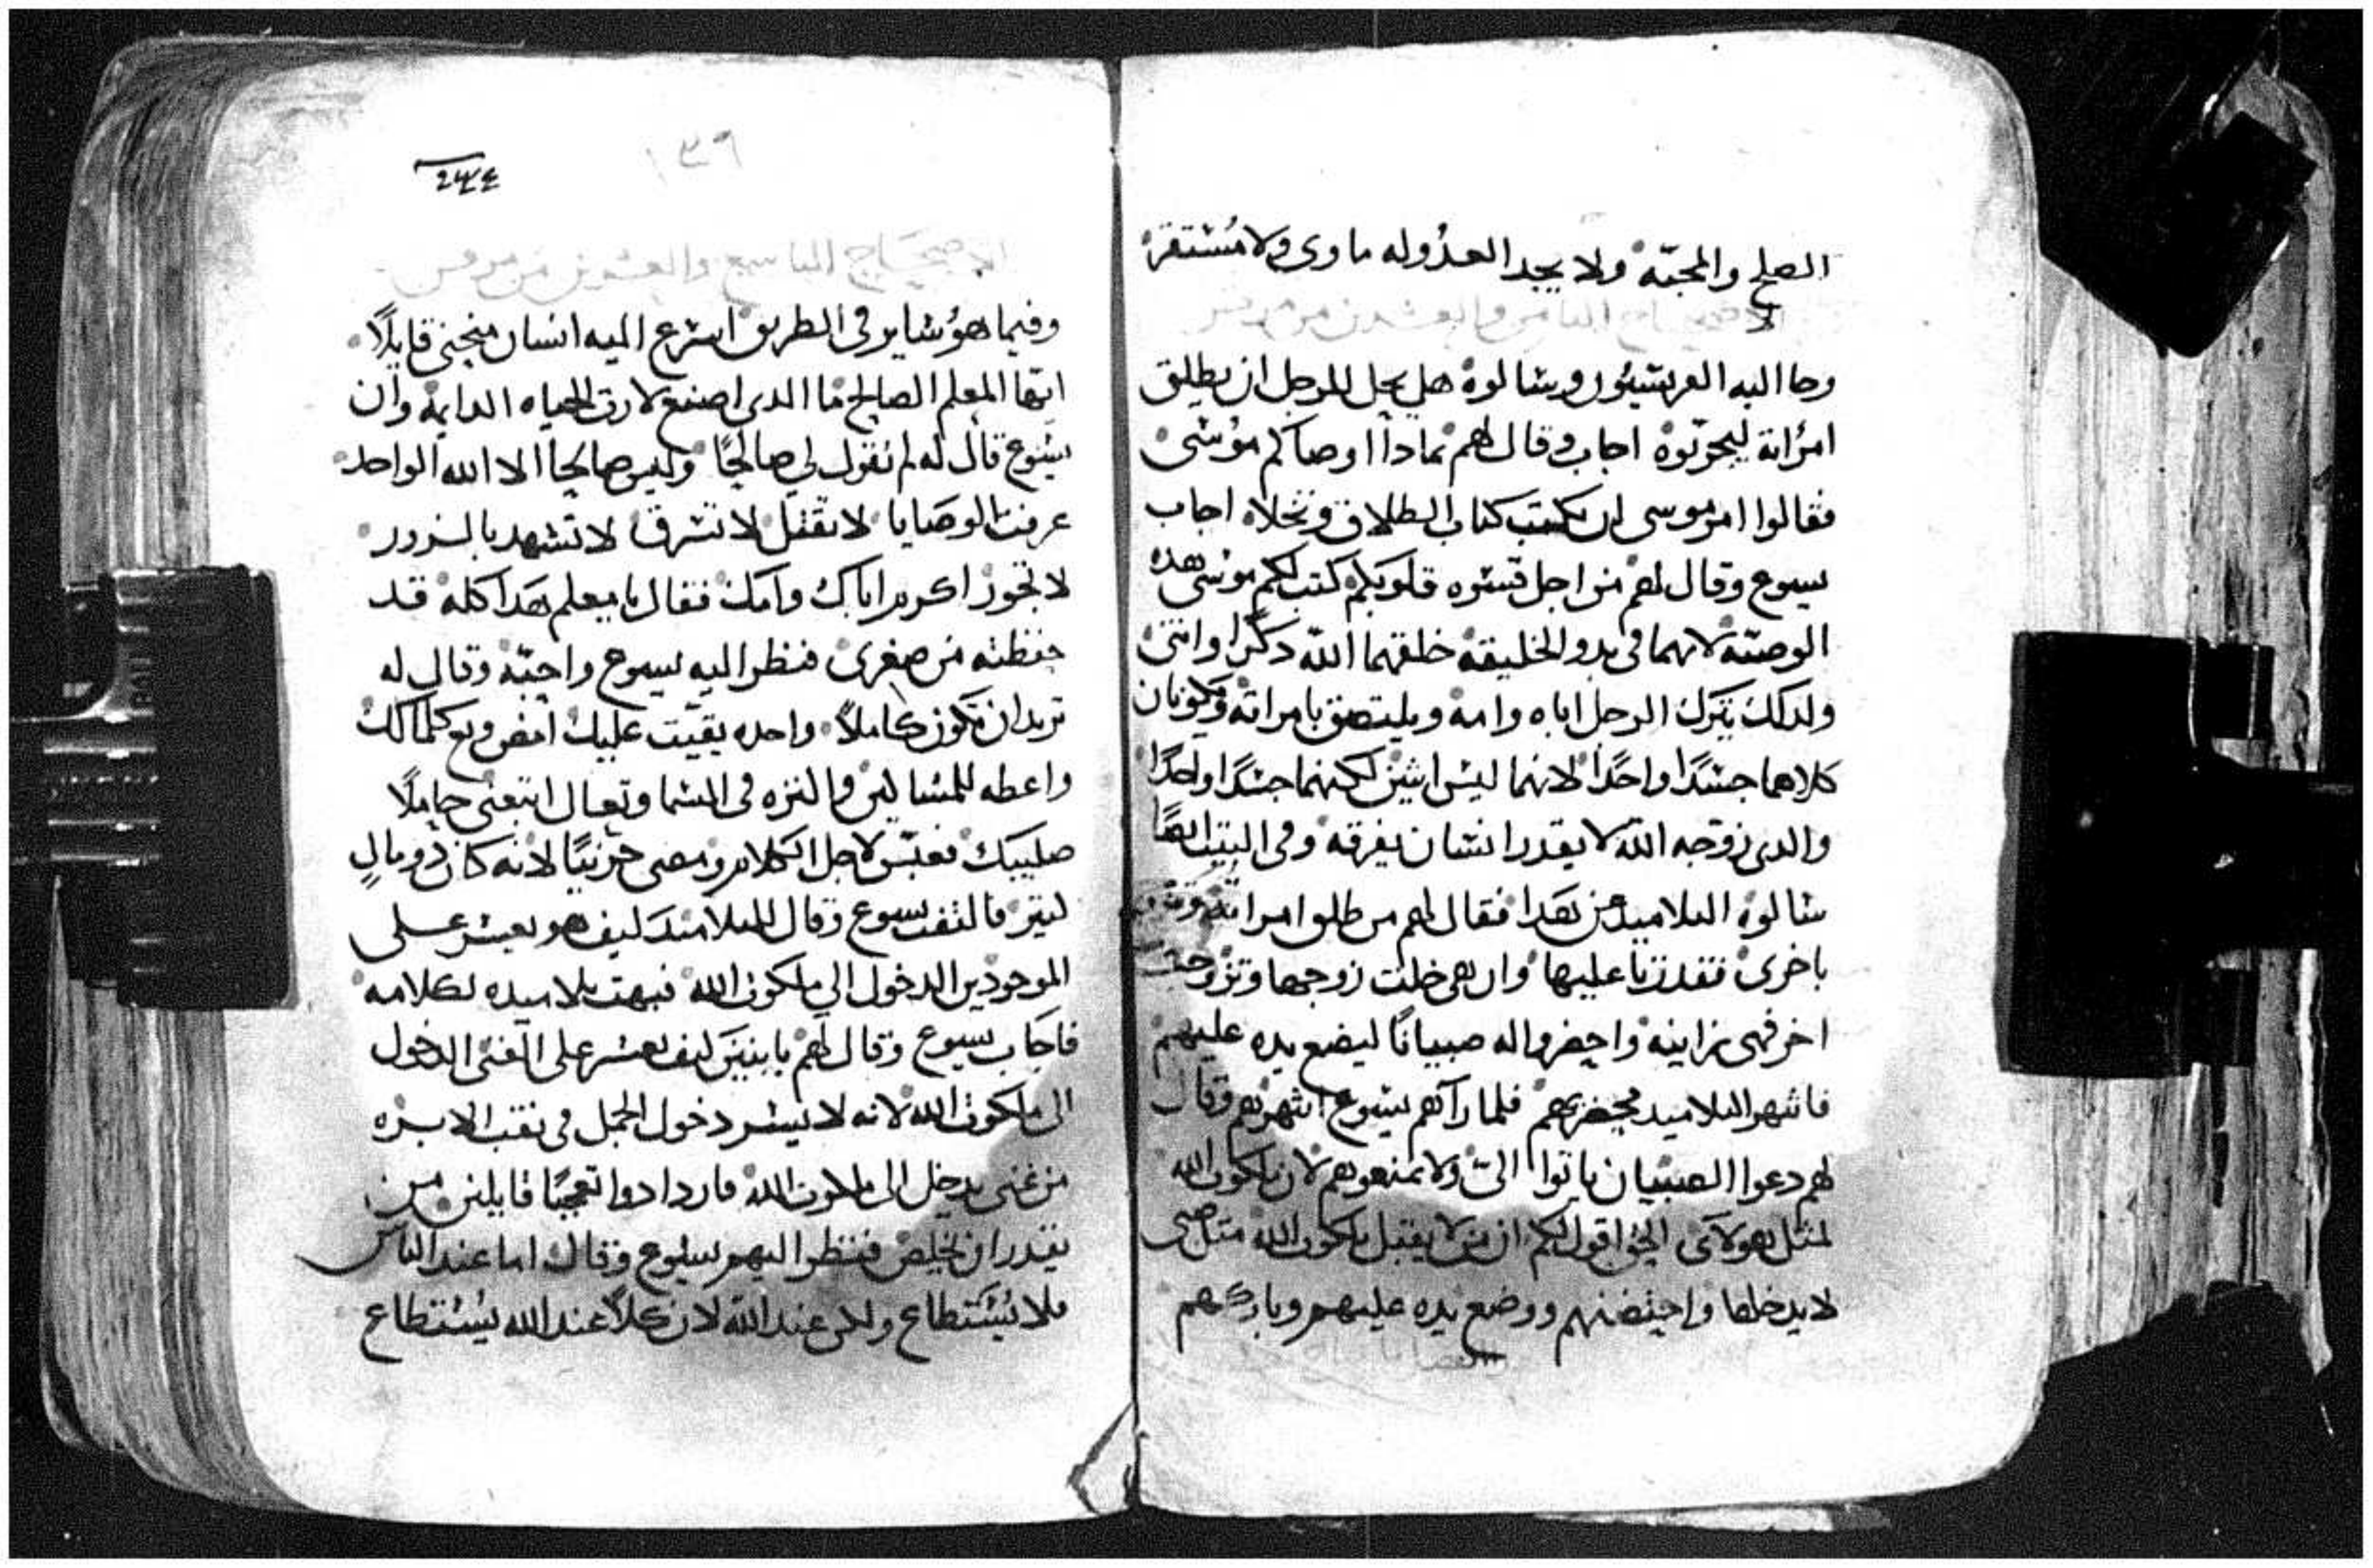 الصلح والمحبّه ولا يجد العدُوله ماوى ولا مُستقر
الاصحاح الثامن والعشرون من مرقس
وجا اليه الفريسيُون وسالوه هل يحل للرجل ان يطلق
امرُاته ليجرّبوهْ اجاب وقال لهم بمادا اوصاكم موُسىْ
فقالوا امر موسى ان نكتب كتاب الطلاق ونخلاه اجاب
يسوع وقال لهم من اجل قسوه قلوبكم كتب لكم موسى هده
الوصيّه لانهما فى بدو الخليقه خلقهما اللّه دكرًا وانتى
ولدلك يترك الرجل اباه وامه ويلتصق بامراته ويكونان
كلاهما جسدًا واحدًا لانهما ليس اثنين لكنهما جسدًا واحدًا
والدى زوّجه اللّه لا يقدر انسان يفرقه وفى البيت ايضًا
سالوه التلاميد عن هدا فقال لهم من طلق امراته وتزوج
باخرى فقد زنا عليها وان هى خلت زوجها وتزوجت
اخر فهى زانيه واحضروا له صبيانًا ليضع يده عليهم
فانتهر التلاميد محضريهم فلما رآهم يسوع انتهرهم وقال
لهم دعوا الصبيان ياتوا الىّ ولا تمنعوهم لان ملكوت الله
لمتل هولآى الحق اقول لكم ان من لا يقبل ملكوت الله متل صبى
لا يدخلها واحتضنهم ووضع يده عليهم وباركهم
١٣٩
الاصحاح التاسع والعشرون من مرقس
وفيما هو ساير فى الطريق اسرع اليه انسان منحنى قايلًا
ايّها المعلم الصالح ما الدى اصنع لارت الحياه الدايمه وان
يسوع قال له لم تقول لى صالحًا وليس صالحًا الا الله الواحد
عرفت الوصايا لا تقتل لا تسرق لا تشهد بالزور
لا تجوز اكرم اباك وامك فقال يا معلم هدا كله قد
حفظته من صغرى فنظر اليه يسوع واحبّه وقال له
تريد ان تكون كاملًا واحده بقيّت عليك امض وبع كلمالك
واعطه للمساكين والنزه فى السما وتعال اتبعنى حاملًا
صليبك فعبّس لاجل الكلام ومضى حزينًا لانه كان دو مالٍ
كتير فالتفت يسوع وقال للتلاميد كيف هو يعسر على
الموجودين الدخول الى ملكوت الله فبهت تلاميده لكلامه
فاجاب يسوع وقال لهم يا بنين كيف يعسر على الغنى الدخول
الى ملكوت الله لانه لا يسر دخول الجمل فى نقب الابره
من غنى يدخل الى ملكوت الله فازدادوا تعجبًا قايلين من
يقدر ان يخلص فنظر اليهم يسوع وقال اما عند الناس
فلا يُستطاع ولكن عند اللّه لان كلًا عند الله يُستطاع